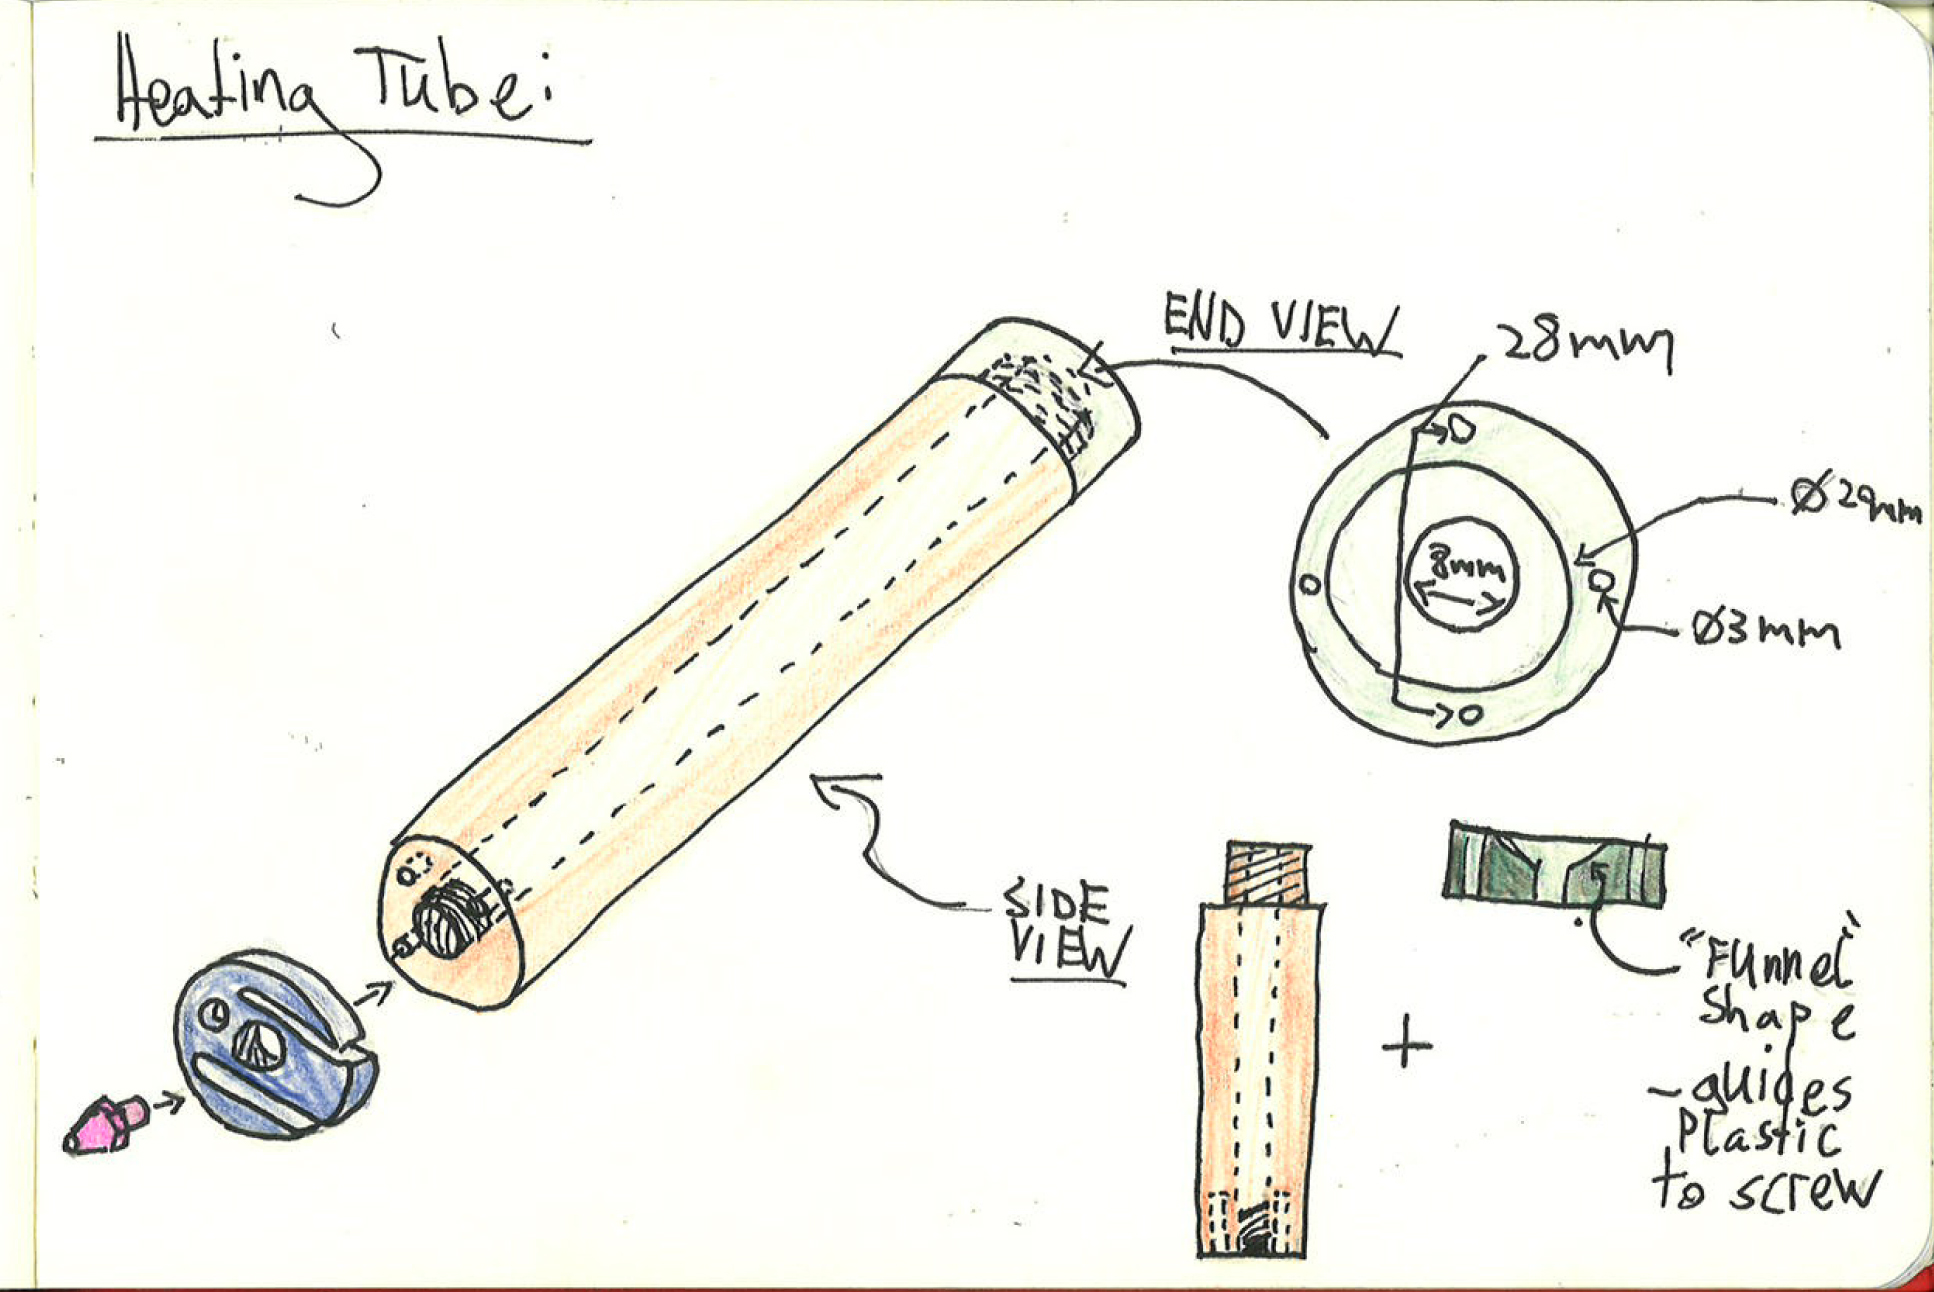 Heating Tube:
END VIEW
28mm
Ø29mm
8mm
Ø3mm
SIDE
VIEW
"Funnel"
Shape
- guides
Plastic
to screw